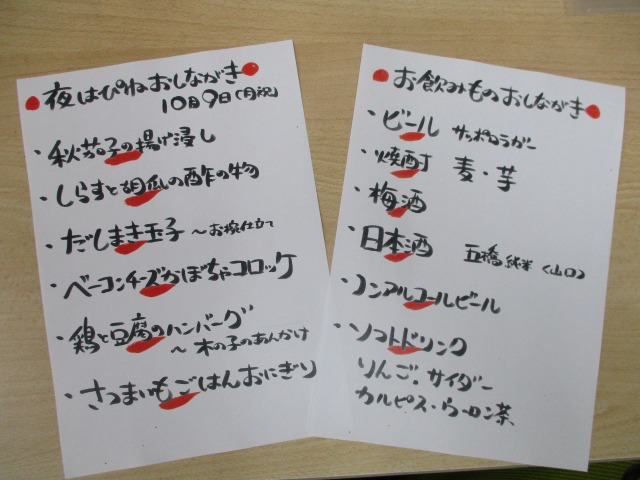 夜はぴねおしながき
10月9日(月祝)
・秋茄子の揚げ浸し
・しらすと胡瓜の酢の物
・だしまき玉子 〜お椀仕立て
・ベーコンチーズかぼちゃコロッケ
・鶏と豆腐のハンバーグ
〜木の子のあんかけ
・さつまいもごはんおにぎり
お飲みものおしながき
・ビール サッポロラガー
・焼酎 麦・芋
・梅酒
・日本酒 五橋 純米〈山口〉
・ノンアルコールビール
・ソフトドリンク
りんご・サイダー
カルピス・ウーロン茶